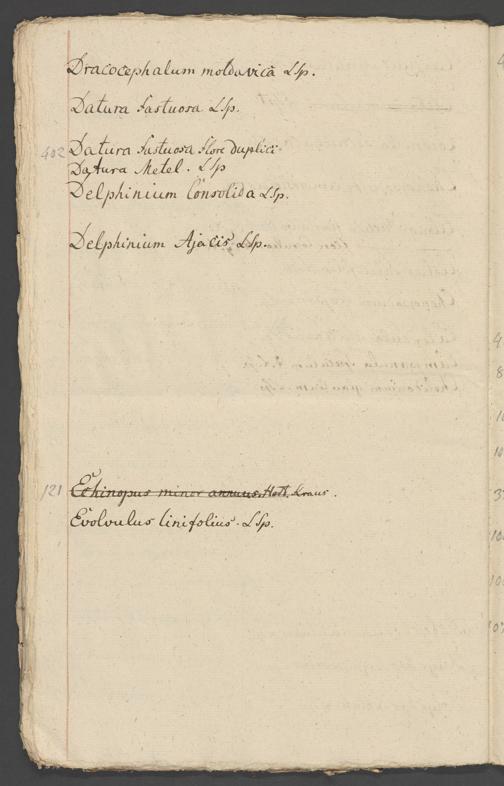 Dracocephalum moldavica LSp.
Datura fastuosa LSp.
402 Datura fastuosa flore duplici.
Datura Metel. LSp
Delphinium Consolida LSp.
Delphinium Ajacis LSp.
121 Echinopus minor annuus. Hort. Kraus.
Evolvulus linifolius. LSp.